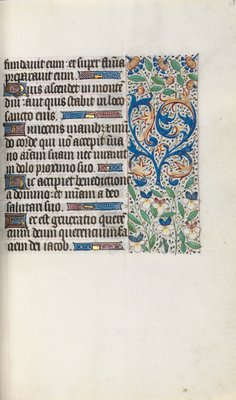 fundavit eum: et super flumina
preparavit eum.
Quis ascendet in montem
dni: aut quis stabit in loco
sancto eius.
Innocens manib; et mun
do corde qui no accepit in va
no aiam suam nec iuravit
in dolo proximo suo.
Hic accipiet benedictione
a domino: et miam a deo
salutari suo.
Hec est generatio quere
cium deum querencium fa
ciem dei iacob.